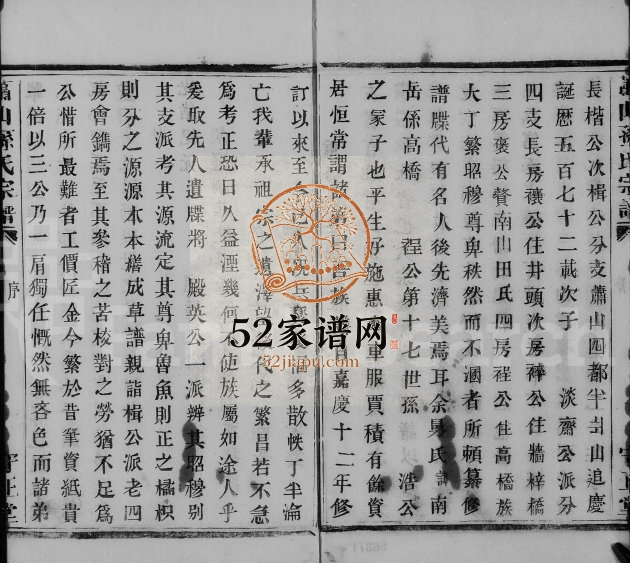 長楷公次楫公分支蕭山四都半爿山追慶
誕歷五百七十二載次子 淡齋公派分
四支長房穰公住井頭次房稺公住牆梓橋
三房裒公贅南山田氏四房程公住高橋族
大丁繁昭穆尊卑秩然而不溷者所頼纂修
譜牒代有名人後先濟美焉耳余舅氏 南
岳係高橋 程公第十七世孫 浩公
之冢子也平生好施惠 車服賈積有餘資
居恒常謂諸 曰 族 自嘉慶十二年修
訂以來至 已久 兵 多散帙丁半淪
亡我輩承祖宗之遺澤 後之繁昌若不急
為考正恐日久益湮幾何 使族屬如涂人乎
爰取先人遺牒將 殿英公一派辨其昭穆別
其支派考其源流定其尊卑魯魚則正之橘枳
則分之源源本本繕成草譜親詣楫公派老四
房會鐫焉至其參稽之苦校對之勞猶不足為
公惜所最難者工價匠金今繁於昔筆資紙貴
一倍以三公乃一肩獨任慨然無吝色而諸弟
蕭山孫氏宗譜
序
52家谱网
52jiapu.com